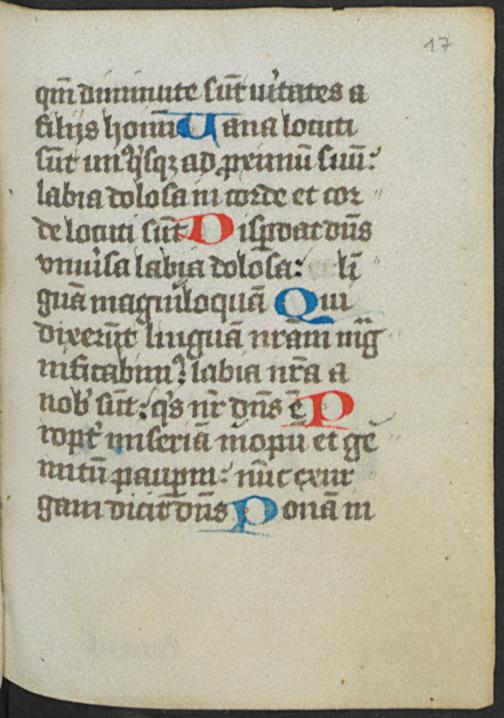 17
qm̄ diminute sūt u̓itates a
filijs hoīm Uana locuti
sūt un̓qͥsqꝫ ad ꝓximū suū:
labia dolosa in corde et cor
de locuti sūt Disꝑdat dn̄s
vniu̓sa labia dolosa: lī
guā magniloquā Qui
dixerūt linguā nrā̄m mag
nificabim̓: labia nr̄a a
nob̓ sūt: qͥs nr̄ dn̄s ē P
ropt̓ miseriā inopū et ge
mitū pauꝑm: nūc exur
gam dicit dn̄s Ponā in